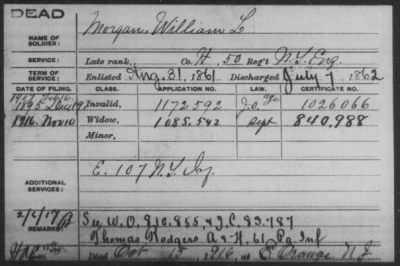 DEAD
NAME OF SOLDIER: Morgan William L
SERVICE: Late rank, Co. H, 50 Reg't N.Y. Eng.
TERM OF SERVICE: Enlisted Aug. 21, 1861 Discharged July 7, 1862
DATE OF FILING. CLASS. APPLICATION NO. LAW. CERTIFICATE NO.
1895 Invalid, 1172.592 1026066
1916. Nov 10 Widow, 1085.542 Sept 840,988
Minor,
ADDITIONAL SERVICES: E. 107 N.Y. Inf.
2/6/17
REMARKS: See W.O. 810.855, & J.C. 83.787
Thomas Rodgers A & H, 61, Pa Inf
Oct 1916, at E Orange N.J.